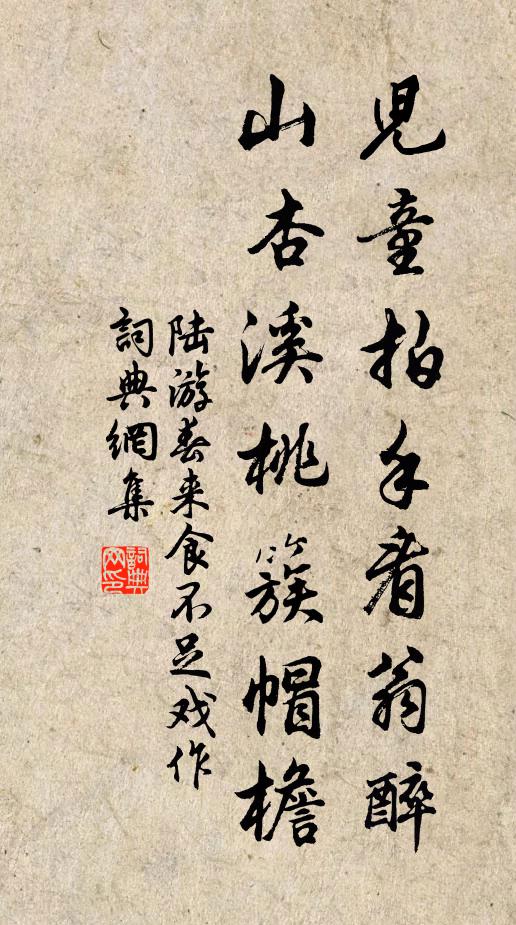 兒童拍手看翁醉
山杏溪桃簇帽檐
陆游春来食不足戏作
詞典網集
詞典网印